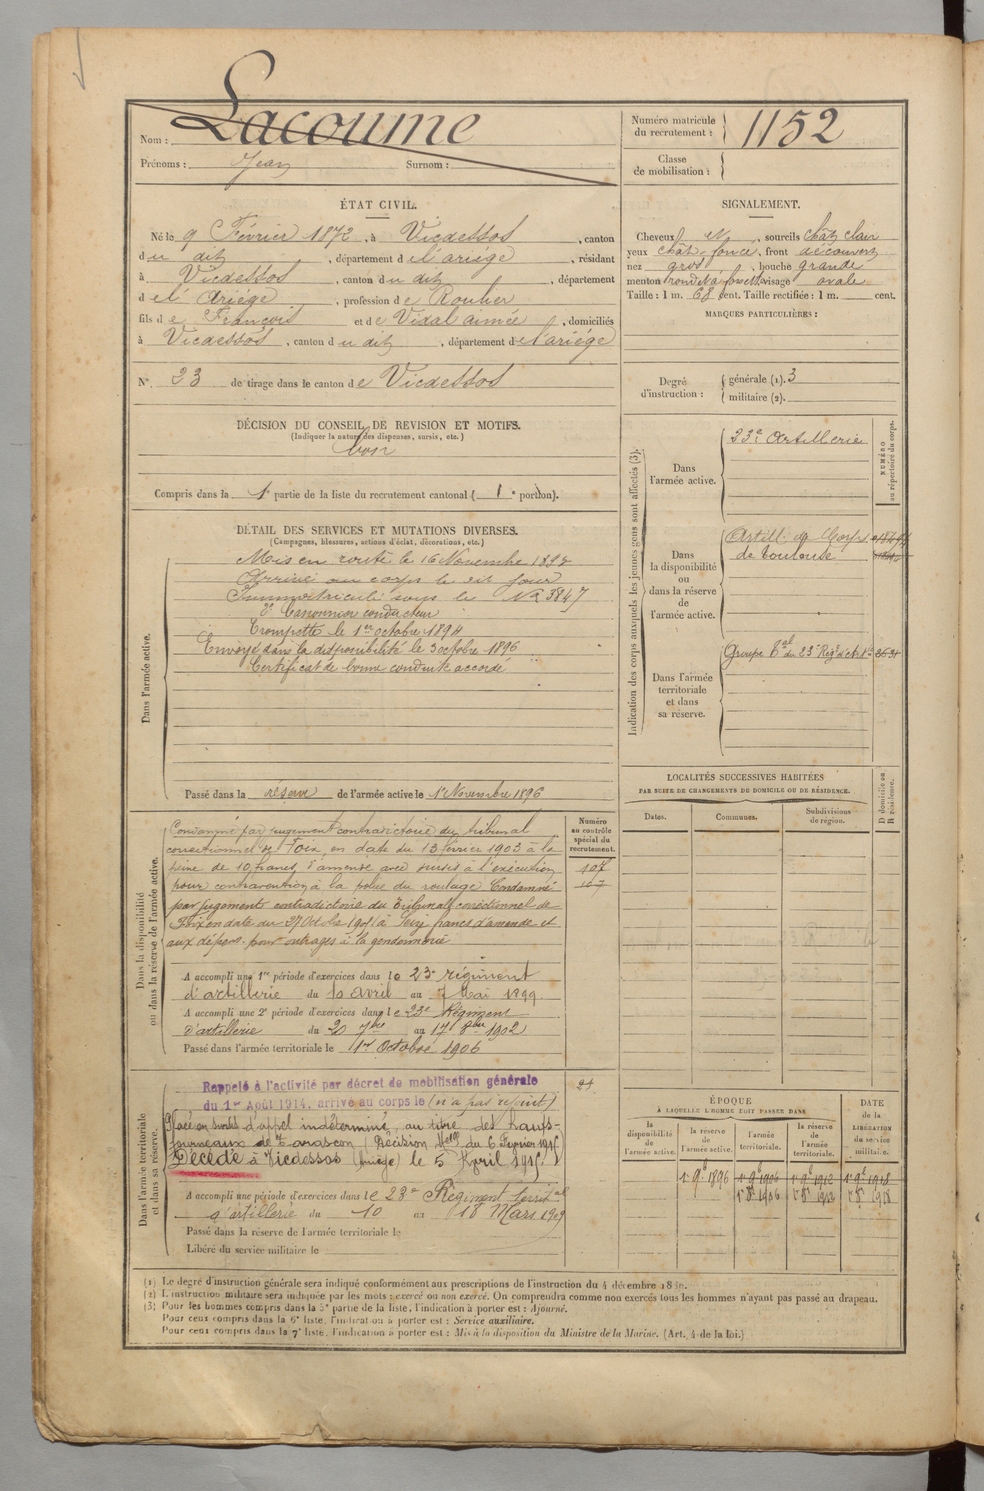 Nom : Lacoume
Prénoms : Jean Surnom :
Numéro matricule du recrutement : 1152
Classe de mobilisation :
ÉTAT CIVIL.
Né le 9 Février 1872, à Vicdessos, canton
du dit, département de l'ariége, résidant
à Vicdessos, canton du dit, département
de l'Ariége, profession de Roulier
fils de François et de Vidal aimée, domiciliés
à Vicdessos, canton du dit, département de l'ariége
N° 23 de tirage dans le canton de Vicdessos
SIGNALEMENT.
Cheveux et, sourcils chât clair
yeux chât. foncé, front découvert
nez gros, bouche grande
menton rond et à fossette visage ovale
Taille : 1 m. 68 cent. Taille rectifiée : 1 m. cent.
MARQUES PARTICULIÈRES :
Degré d'instruction : générale (1). 3
militaire (2).
DÉCISION DU CONSEIL DE REVISION ET MOTIFS.
(Indiquer la nature des dispenses, sursis, etc.)
bon
Compris dans la 1e partie de la liste du recrutement cantonal (1e portion).
DÉTAIL DES SERVICES ET MUTATIONS DIVERSES.
(Campagnes, blessures, actions d'éclat, décorations, etc.)
Dans l'armée active.
Mis en route le 16 Novembre 1892
Arrivé au corps le dit jour
Immatriculé sous le N° 3847
2e Canonnier conducteur
Trompette le 1er octobre 1894
Envoyé dans la disponibilité le 3 octobre 1896
Certificat de bonne conduite accordé
Passé dans la réserve de l'armée active le 1er Novembre 1896
Indication des corps auxquels les jeunes gens sont affectés (3).
NUMÉRO au répertoire du corps.
Dans l'armée active.
23e Artillerie
Dans la disponibilité ou dans la réserve de l'armée active.
Artill. de Corps
de toulouse
Dans l'armée territoriale et dans sa réserve.
Groupe tal du 23e Régt d'art
LOCALITÉS SUCCESSIVES HABITÉES
PAR SUITE DE CHANGEMENTS DE DOMICILE OU DE RÉSIDENCE.
Dates. Communes. Subdivisions de région. D domicile ou R résidence.
Dans la disponibilité ou dans la réserve de l'armée active.
Numéro au contrôle spécial du recrutement.
107
Condamné par jugement contradictoire du tribunal
correctionnel de Foix en date du 13 février 1903 à la
peine de 10 francs d'amende avec sursis à l'exécution
pour contravention à la police du roulage Condamné
par jugement contradictoire du Tribunal correctionnel de
Foix en date du 27 Octobre à Seize francs d'amende et
aux dépens. pour outrages à la gendarmerie
A accompli une 1re période d'exercices dans le 23e régiment
d'artillerie du 10 avril au 7 Mai 1899
A accompli une 2e période d'exercices dans le 23e Régiment
d'artillerie du 20 7bre au 17 8bre 1902
Passé dans l'armée territoriale le 1er Octobre 1906
Dans l'armée territoriale et dans sa réserve.
24
Rappelé à l'activité par décret de mobilisation générale
du 1er Août 1914, arrivé au corps le (n'a pas rejoint)
Placé en sursis d'appel indéterminé, au titre des Hauts-
fourneaux de Tarascon (Décision Melle du 6 Février 1915)
Décédé à Vicdessos (Ariège) le 5 Avril 1915.
A accompli une période d'exercices dans le 23e Régiment territal
d'artillerie du 10 au 18 Mars 1909
Passé dans la réserve de l'armée territoriale le
Libéré du service militaire le
ÉPOQUE
À LAQUELLE L'HOMME DOIT PASSER DANS
la disponibilité de l'armée active. la réserve de l'armée active. l'armée territoriale. la réserve de l'armée territoriale. DATE de la LIBÉRATION du service militaire.
1er 9b 1896 1er 9b 1906 1er 9b 1912 1er 9b 1918
1er 8b 1906 1er 8b 1912 1er 8b 1918
(1) Le degré d'instruction générale sera indiqué conformément aux prescriptions de l'instruction du 4 décembre
(2) L'instruction militaire sera indiquée par les mots : exercé ou non exercé. On comprendra comme non exercés tous les hommes n'ayant pas passé au drapeau.
(3) Pour les hommes compris dans la 5e partie de la liste, l'indication à porter est : Ajourné.
Pour ceux compris dans la 6e liste, l'indication à porter est : Service auxiliaire.
Pour ceux compris dans la 7e liste, l'indication à porter est : Mis à la disposition du Ministre de la Marine. (Art. 4 de la loi.)